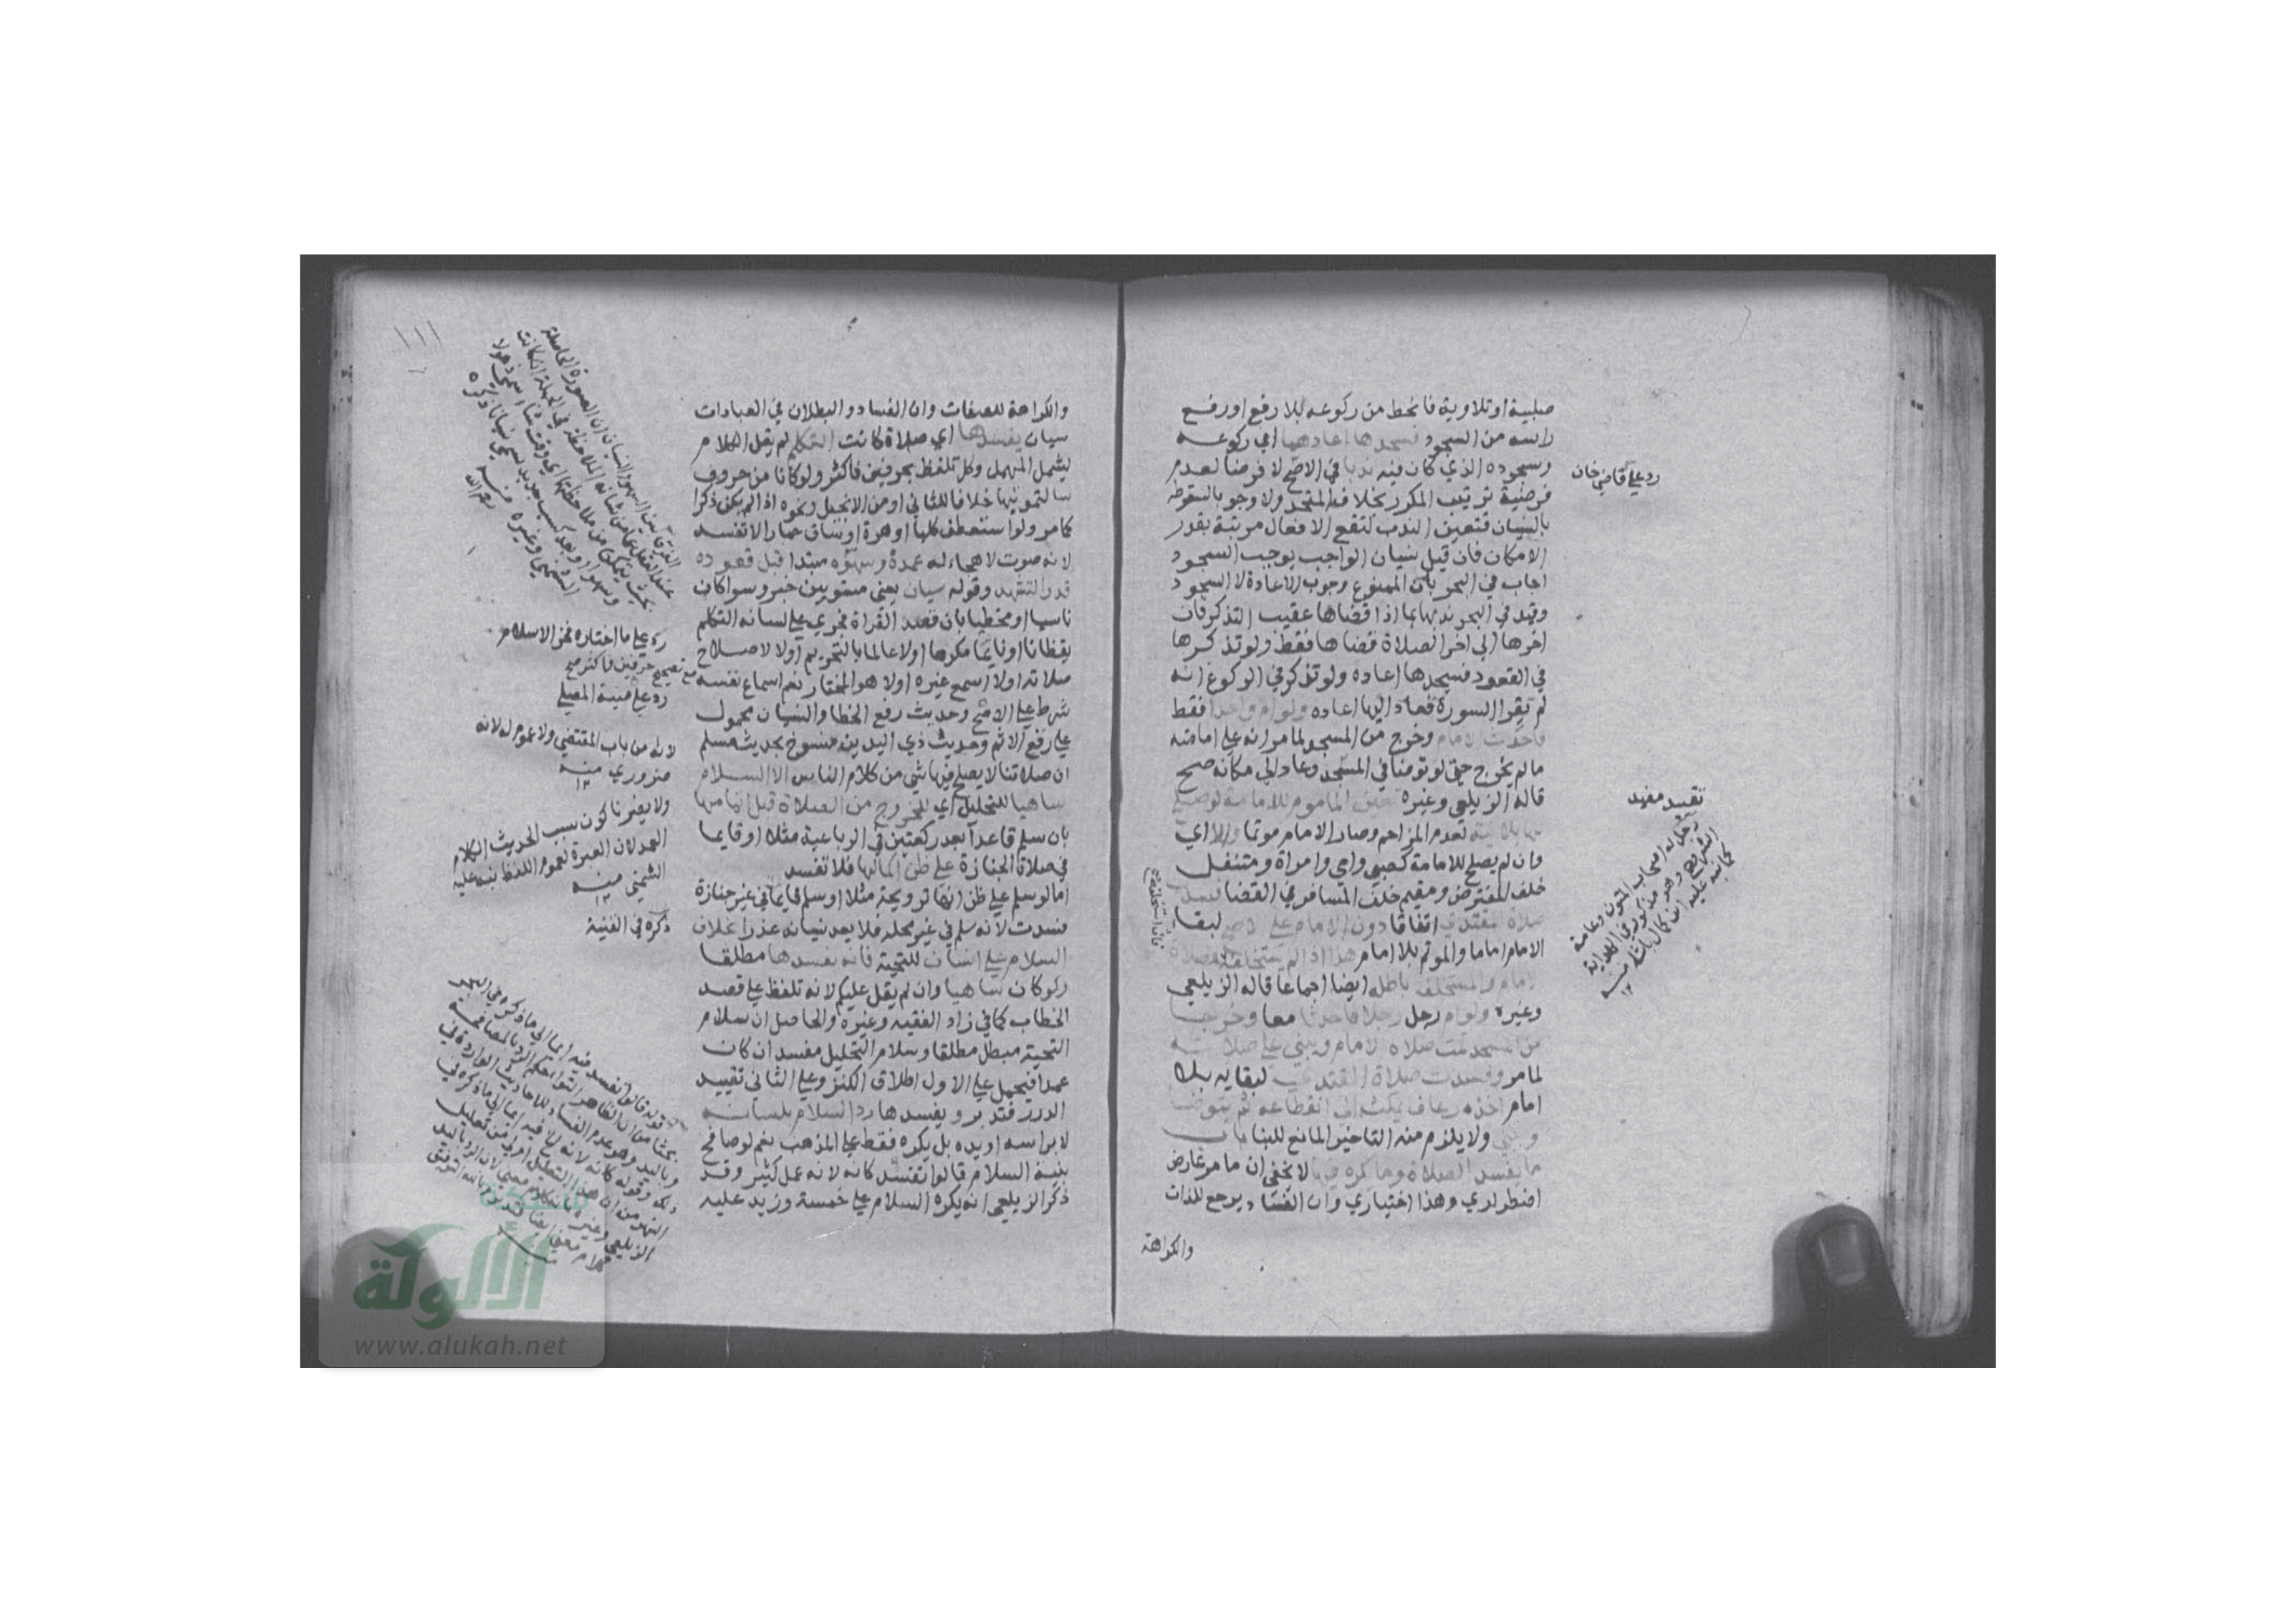 صلبية او تلاوية فانحط من ركوعه بلا رفع او رفع
راسه من السجود فسجدها اعادهما اي ركوعه
وسجوده الذي كان فيه ندبا في الاصح لا فرضا لعدم
فرضية ترتيب المكرر بخلاف المتحد ولا وجوبا لسقوطه
بالنسيان فتعين الندب لتقع الافعال مرتبة بقدر
الامكان فان قيل نسيان الواجب يوجب السجود
اجاب في البحر بان الممنوع وجوب الاعادة لا السجود
وقيد في البحر ندبها بما اذا قضاها عقيب التذكر فان
اخرها الى اخر الصلاة قضاها فقط ولو تذكرها
في القعود فسجدها اعاده ولو تذكر في الركوع انه
لم يقرا السورة فعاد اليها اعاده ولو ام واحدا فقط
فاحدث الامام وخرج من المسجد لما مر انه على امامته
ما لم يخرج حتى لو توضا في المسجد وعاد الى مكانه صح
قاله الزيلعي وغيره تعين الماموم للامامة لو صلح
لها بلا نية لعدم المزاحم وصار الامام موتما والا اي
وان لم يصلح للامامة كصبي وامي وامراة ومتنفل
خلف المفترض ومقيم خلف المسافر في القضا فسدت
صلاة المقتدي اتفاقا دون الامام على الاصح لبقا
الامام اماما والموتم بلا امام هذا اذا لم يستخلفه فصلاة
الامام والمستخلف باطلة ايضا اجماعا قاله الزيلعي
وغيره ولو ام رجل رجلا فاحدثا معا وخرجا
من المسجد تمت صلاة الامام ويبني على صلاته
لما مر وفسدت صلاة المقتدي لبقايه بلا
امام اخذه رعاف يمكث الى انقطاعه ثم يتوضا
ويبني ولا يلزم منه التاخير المانع للبنا باب
ما يفسد الصلاة وما يكره فيها لا يخفى ان ما مر عارض
اضطراري وهذا اختياري وان الفساد يرجع للذات
والكراهة
رد على قاضي خان
تفسد مفيد
والكراهة للصفات وان الفساد والبطلان في العبادات
سيان يفسدها اي صلاة كانت التكلم لم يقل الكلام
ليشمل المهمل وكل تلفظ بحرفين فاكثر ولو كانا من حروف
سالتمونيها خلافا للثاني او من الانجيل ونحوه اذا لم يكن ذكرا
كما مر ولو استعطف كلبا او هرة او ساق حمارا لا تفسد
لانه صوت لا هجاء له عمده وسهوه مبتدا قبل قعوده
قدر التشهد وقوله سيان يعني مستويين خبر وسوا كان
ناسيا او مخطيا بان قصد القراة فجرى على لسانه التكلم
يقظانا او نايما مكرها اولا عالما بالتحريم اولا لاصلاح
صلاته اولا اسمع غيره اولا هو المختار نعم اسماع نفسه
شرط على الاصح وحديث رفع الخطا والنسيان محمول
على رفع الاثم وحديث ذي اليدين منسوخ بحديث مسلم
ان صلاتنا لا يصلح فيها شي من كلام الناس الا السلام
ساهيا للتحليل اي للخروج من الصلاة قبل اتمامها
بان سلم قاعدا بعد ركعتين في الرباعية مثلا او قايما
في صلاة الجنازة على ظن اكمالها فلا تفسد
اما لو سلم على ظن انها ترويحة مثلا او سلم قايما في غير جنازة
فسدت لانه سلم في غير محله فلا يعد نسيانه عذرا بخلاف
السلام على انسان للتحية فانه يفسدها مطلقا
ولو كان ساهيا وان لم يقل عليكم لانه تلفظ على قصد
الخطاب كما في زاد الفقيه وغيره والحاصل ان سلام
التحية مبطل مطلقا وسلام التحليل مفسد ان كان
عمدا فيحمل على الاول اطلاق الكنز وعلى الثاني تقييد
الدرر فتدبر ويفسدها رد السلام بلسانه
لا براسه او يده بل يكره فقط على المذهب نعم لو صافح
بنية السلام قالوا تفسد كانه لانه عمل كثير وقد
ذكر الزيلعي انه يكره السلام على خمسة وزيد عليه
١١١
رد على ما اختاره فخر الاسلام
رد على منية المصلي
لانه من باب المقتضي ولا عموم له لانه
ضروري منه
ولا يضرنا كون سبب الحديث الكلام
العمد لان العبرة لعموم اللفظ نبه عليه
الشمني منه
ذكره في القنية
الألوكة
www.alukah.net